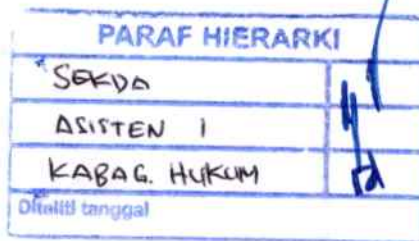 PARAF HIERARKI
SEKDA
ASISTEN 1
KABAG. HUKUM
Diteliti tanggal